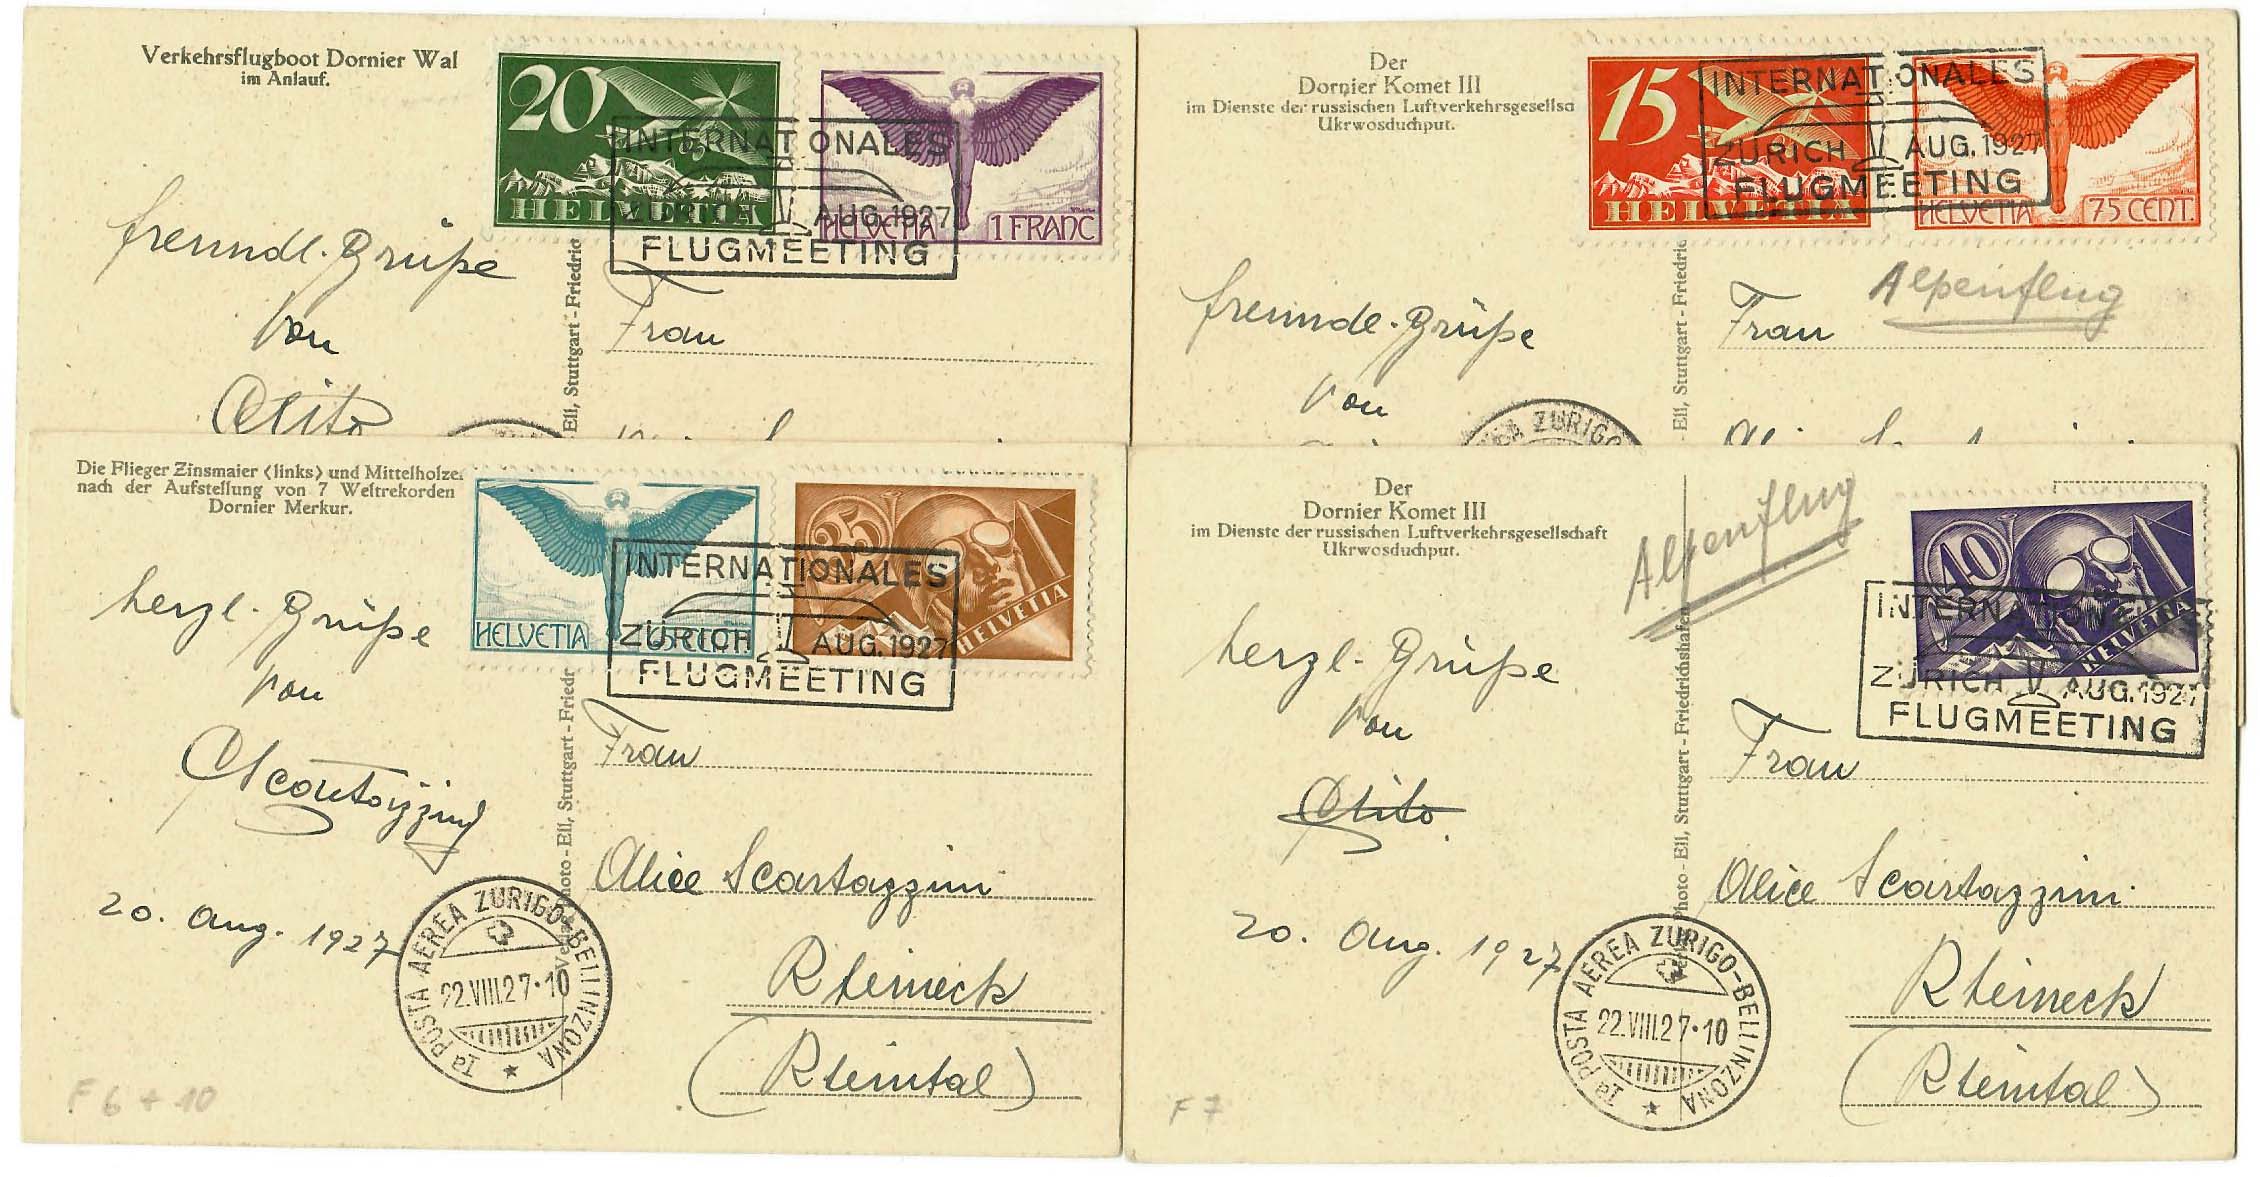 Verkehrsflugboot Dornier Wal
im Anlauf.
20
HELVETIA
HELVETIA 1 FRANC
INTERNATIONALES
ZÜRICH AUG. 1927
FLUGMEETING
freundl. Grüße
von
Frau
Ell, Stuttgart - Friedric
Der
Dornier Komet III
im Dienste der russischen Luftverkehrsgesellsc
Ukrwosduchput.
15
HELVETIA
HELVETIA 75 CENT.
INTERNATIONALES
ZÜRICH AUG. 1927
FLUGMEETING
Alpenflug
freundl. Grüße
von
Frau
Ell, Stuttgart - Friedric
EA ZURIGO
Die Flieger Zinsmaier (links) und Mittelholze
nach der Aufstellung von 7 Weltrekorden
Dornier Merkur.
HELVETIA 65 CENT.
35
HELVETIA
INTERNATIONALES
ZÜRICH AUG. 1927
FLUGMEETING
herzl. Grüße
von
Scartazzini
20. Aug. 1927
Frau
Alice Scartazzini
Rheineck
(Rheintal)
Photo-Ell, Stuttgart - Friedr
Iª POSTA AEREA ZURIGO-BELLINZONA
22.VIII.27·10
F 6 + 10
Der
Dornier Komet III
im Dienste der russischen Luftverkehrsgesellschaft
Ukrwosduchput.
Alpenflug
40
HELVETIA
INTERNATIONALES
ZÜRICH AUG. 1927
FLUGMEETING
herzl. Grüße
von
20. Aug. 1927
Frau
Alice Scartazzini
Rheineck
(Rheintal)
Photo - Ell, Stuttgart - Friedrichshafen
Iª POSTA AEREA ZURIGO-BELLINZONA
22.VIII.27·10
F 7